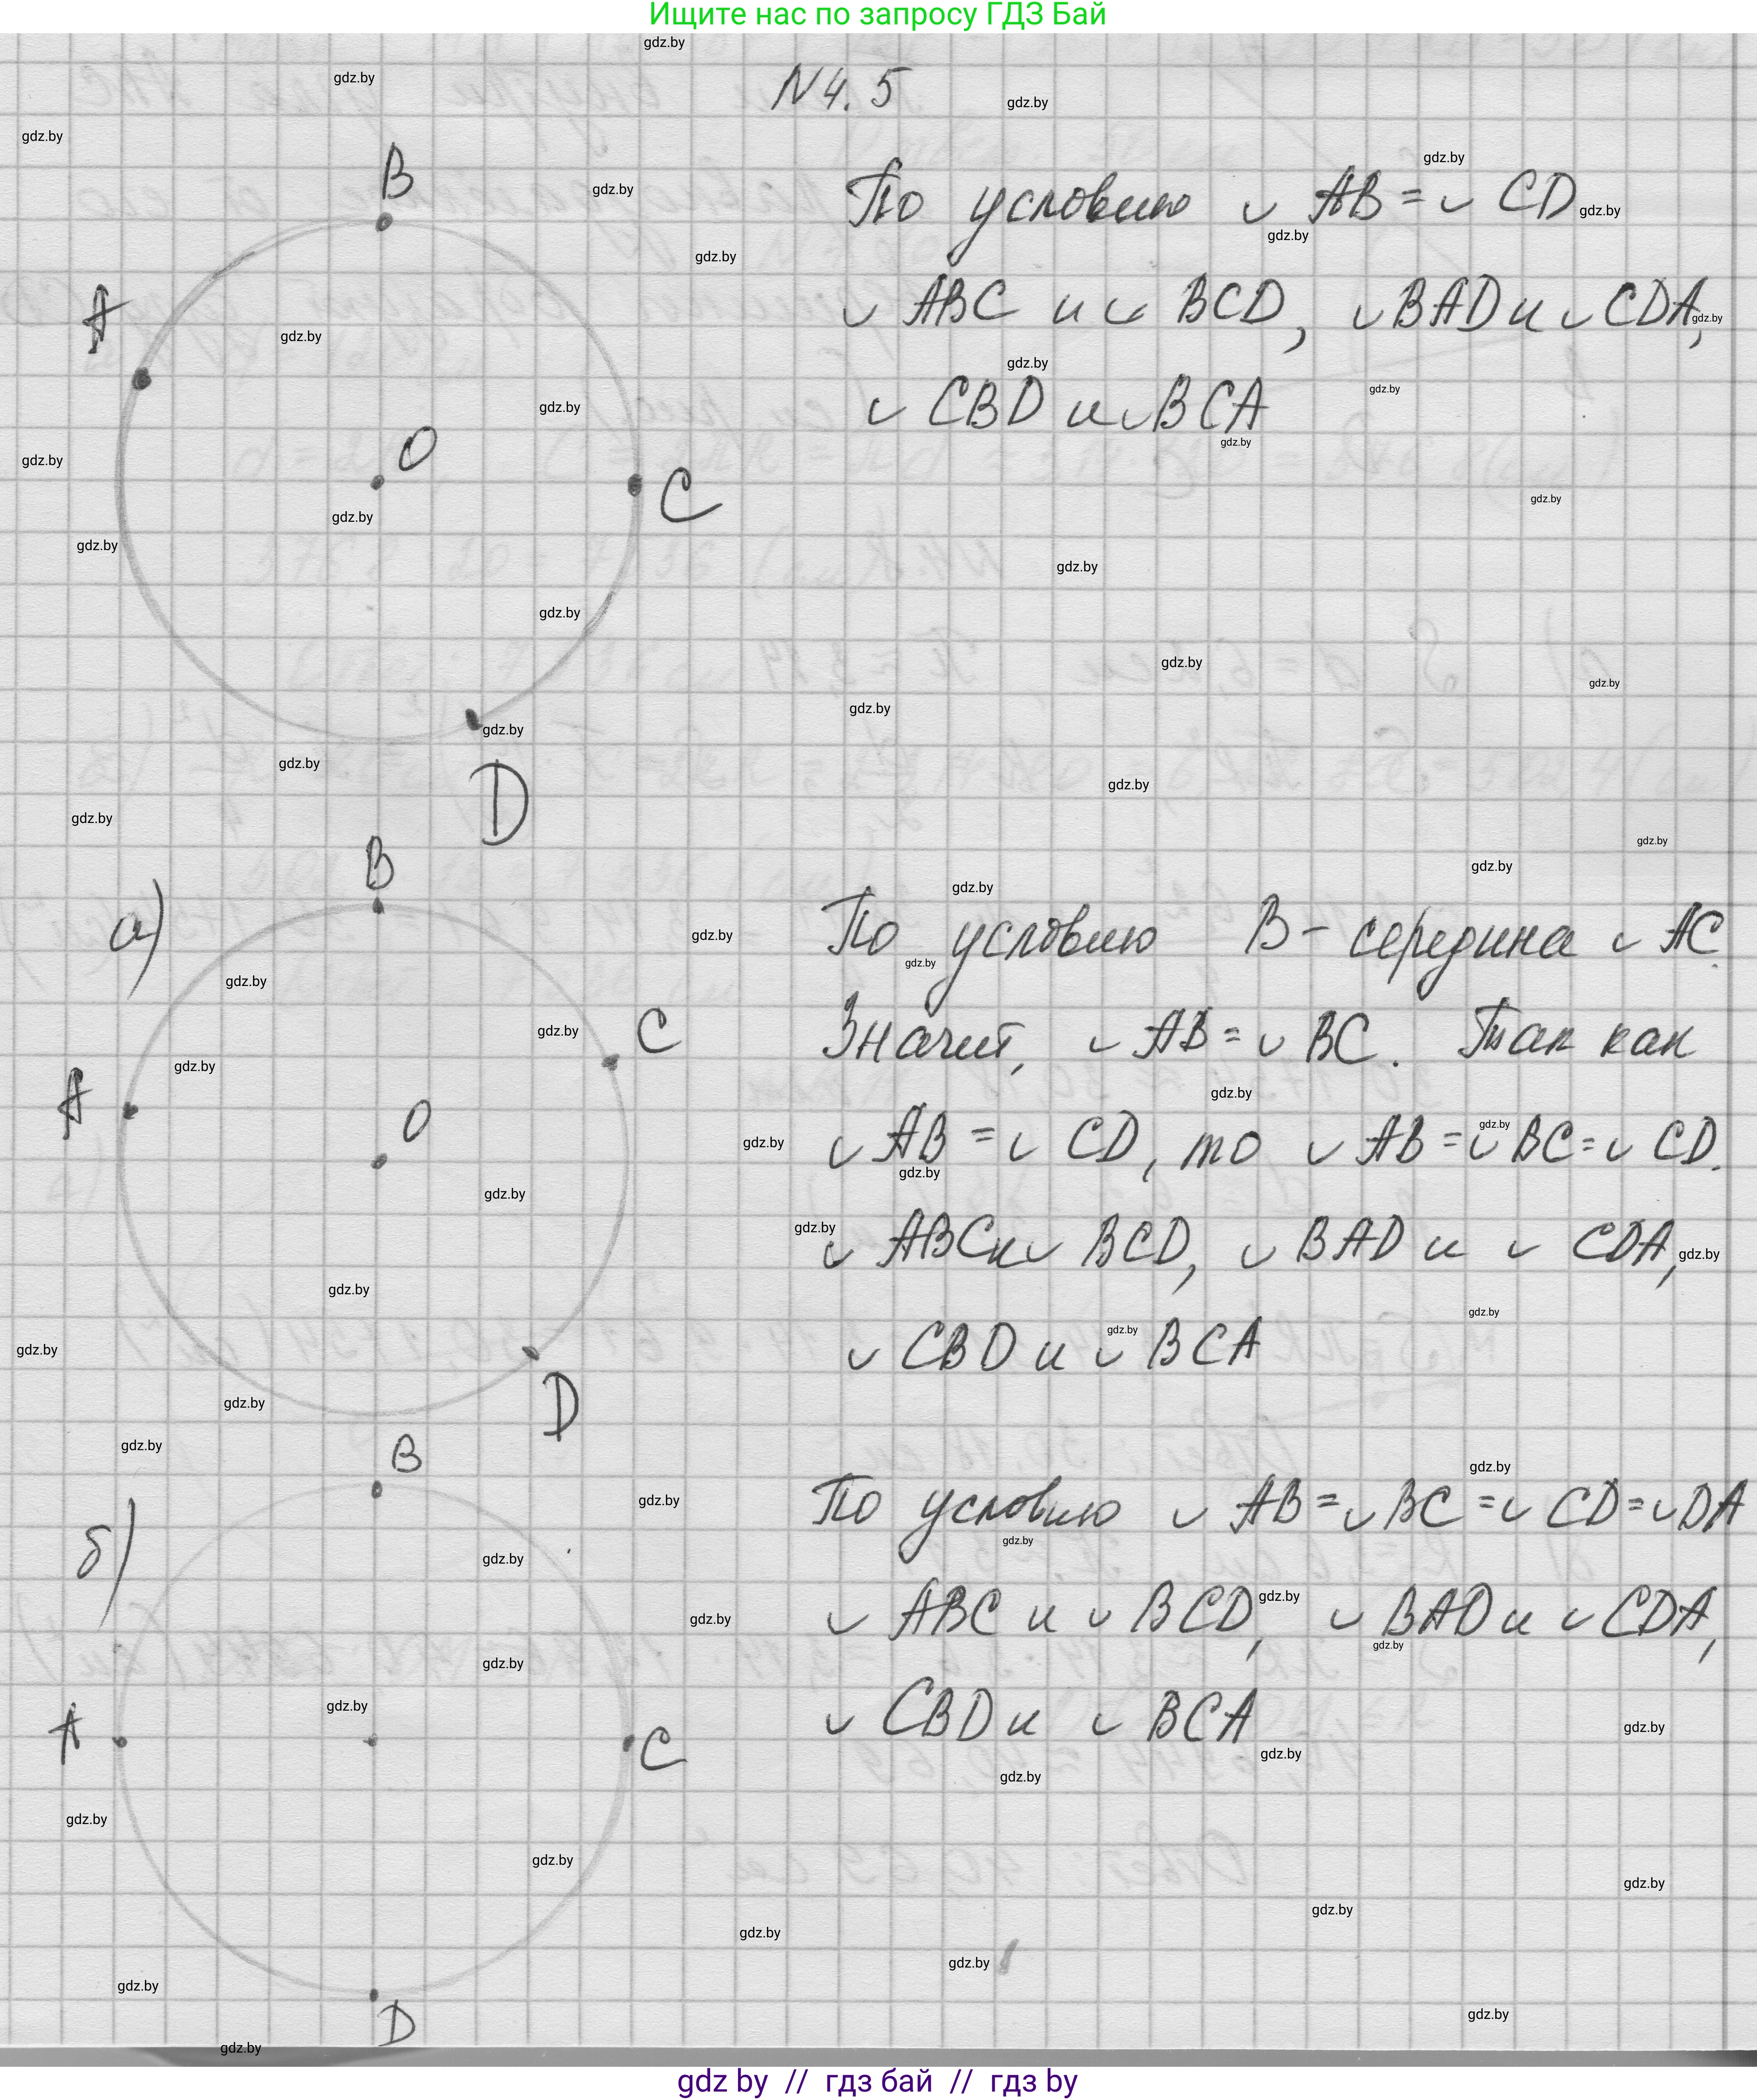 Ищите нас по запросу ГДЗ Бай
N 4. 5
B
A
O
C
D
По условию ◡ AB = ◡ CD
◡ ABC и ◡ BCD, ◡ BAD и ◡ CDA,
◡ CBD и ◡ BCA
а)
B
C
A
O
D
По условию B - середина ◡ AC.
Значит, ◡ AB = ◡ BC. Так как
◡ AB = ◡ CD, то ◡ AB = ◡ BC = ◡ CD.
◡ ABC и ◡ BCD, ◡ BAD и ◡ CDA,
◡ CBD и ◡ BCA
б)
B
A
C
D
По условию ◡ AB = ◡ BC = ◡ CD = ◡ DA
◡ ABC и ◡ BCD, ◡ BAD и ◡ CDA,
◡ CBD и ◡ BCA
gdz.by
gdz by // гдз бай // гдз by